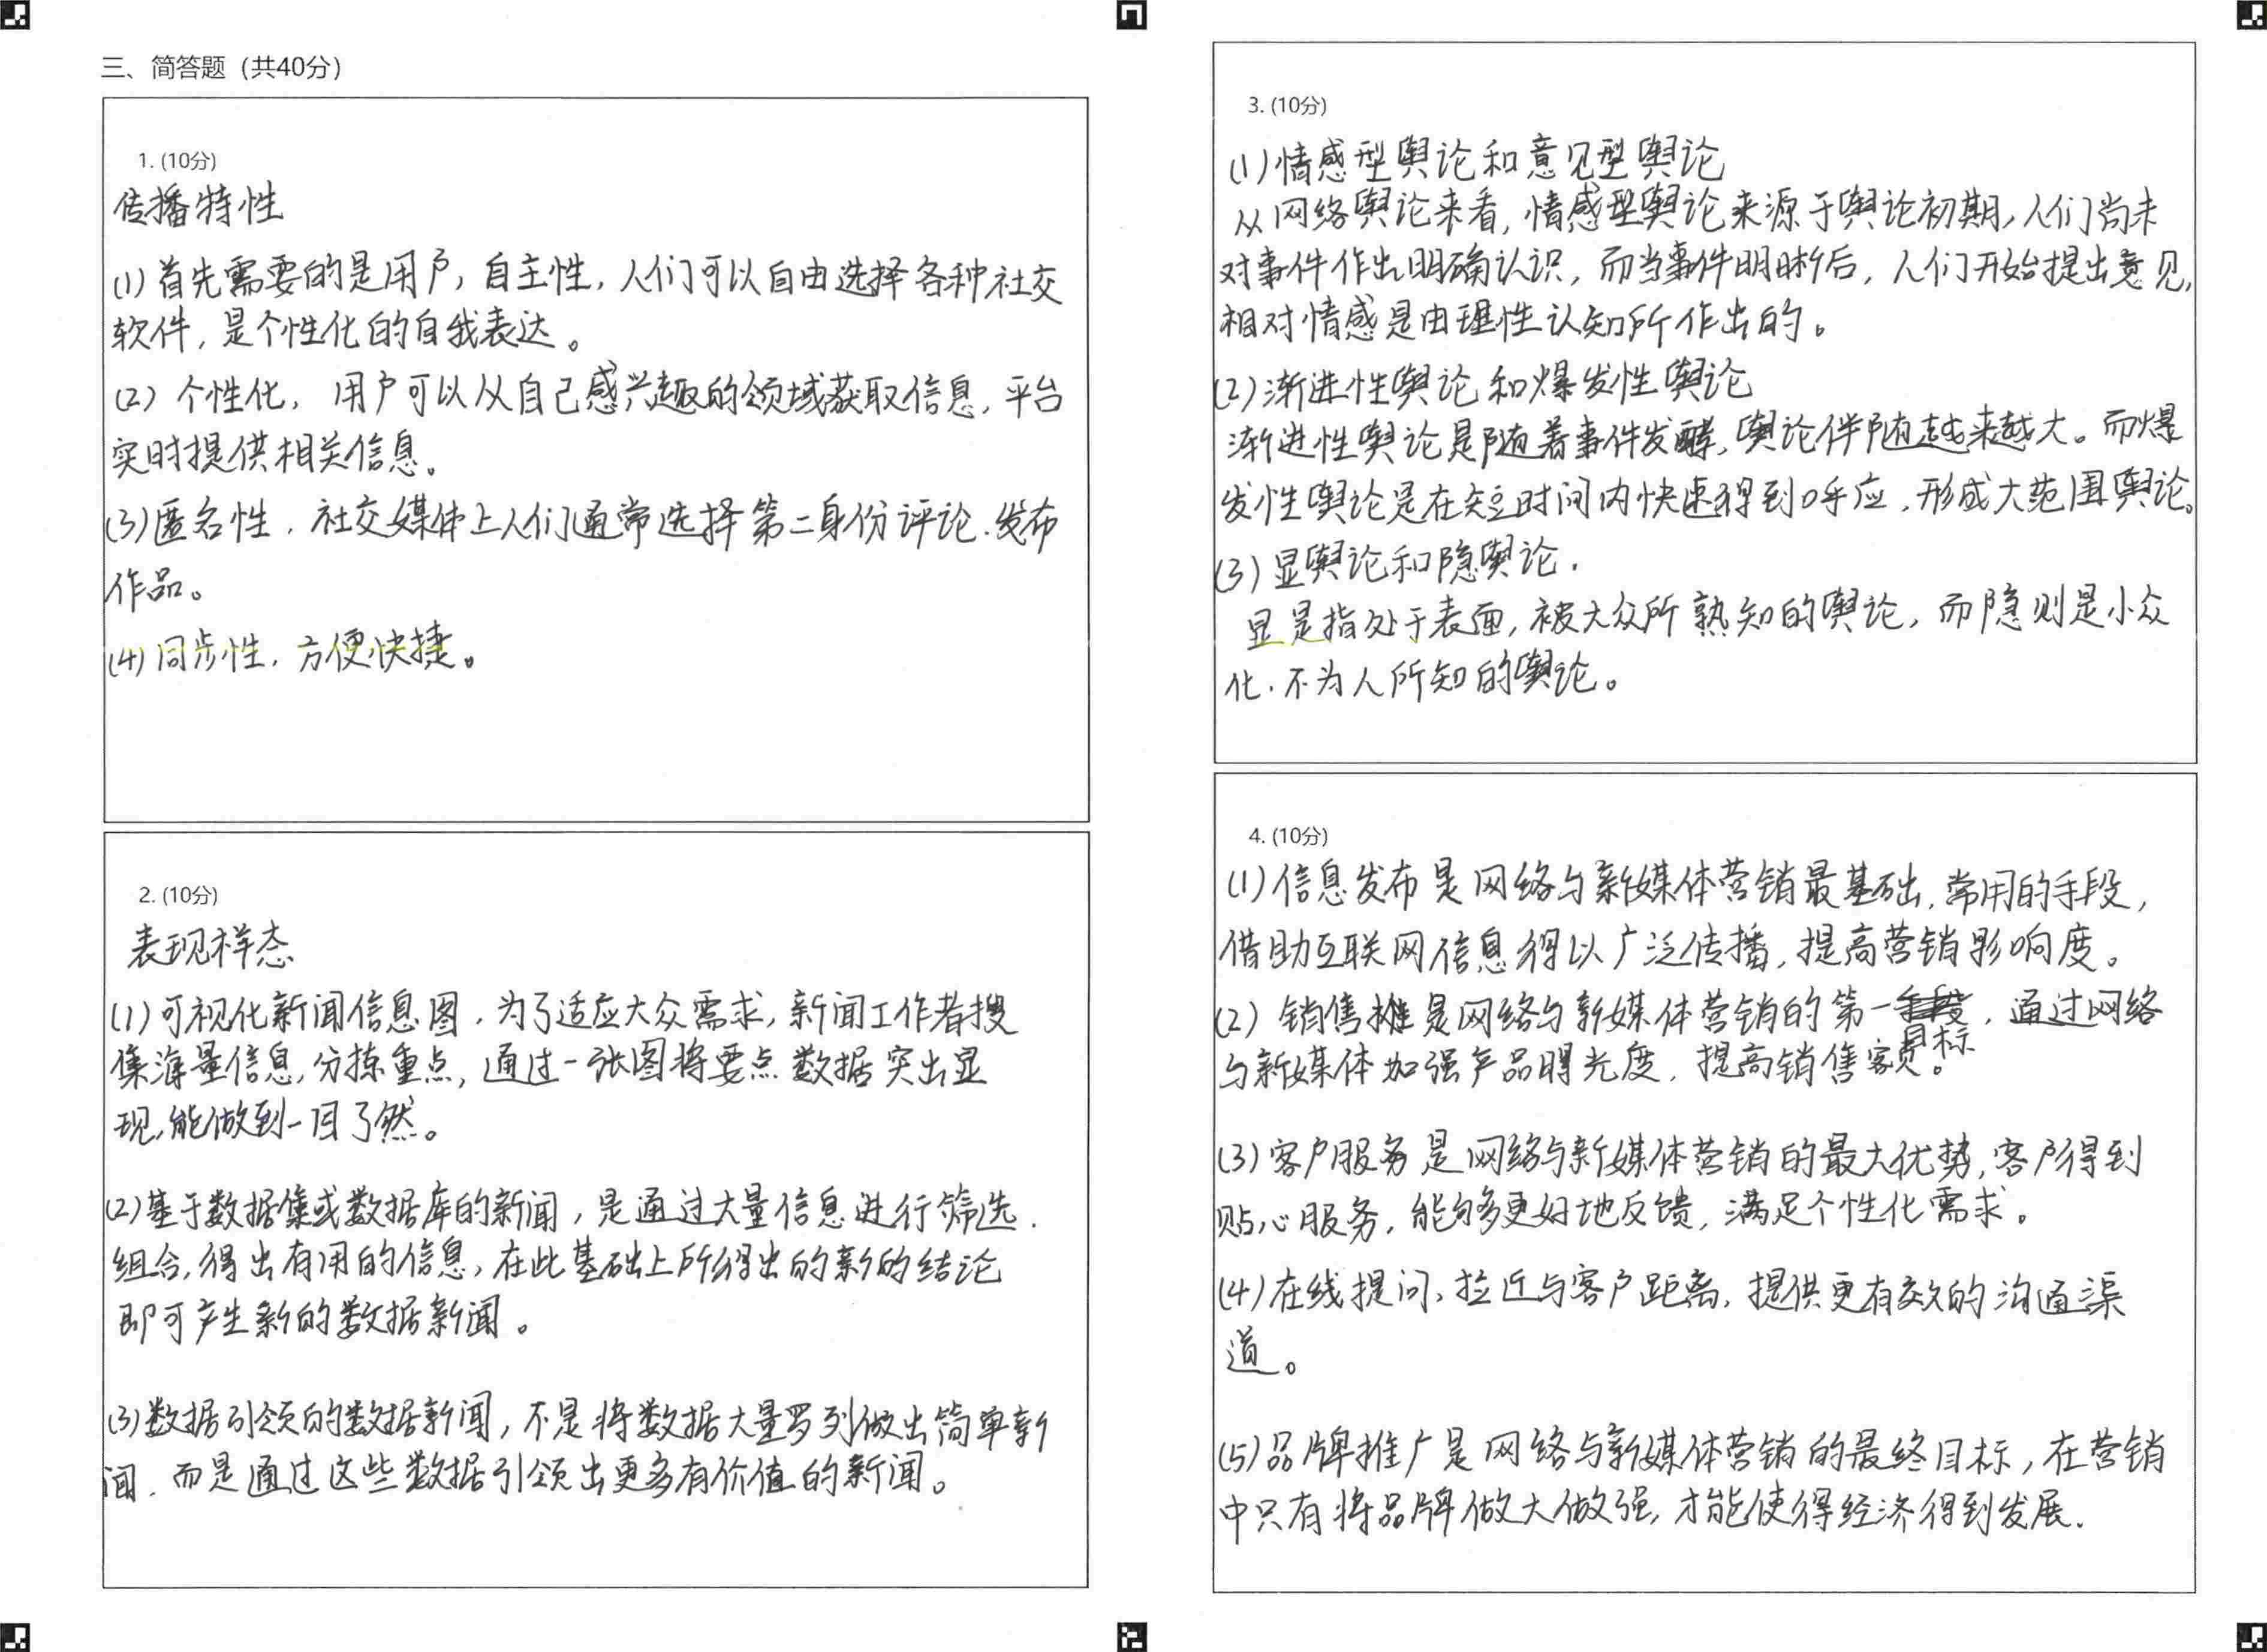 三、简答题（共40分）
1. (10分)
传播特性
(1)首先需要的是用户,自主性,人们可以自由选择各种社交
软件,是个性化的自我表达。
(2)个性化,用户可以从自己感兴趣的领域获取信息,平台
实时提供相关信息。
(3)匿名性,社交媒体上人们通常选择第二身份评论、发布
作品。
(4)同步性,方便快捷。
2. (10分)
表现样态
(1)可视化新闻信息图,为了适应大众需求,新闻工作者搜
集海量信息,分拣重点,通过一张图将要点数据突出显
现,能做到一目了然。
(2)基于数据集或数据库的新闻,是通过大量信息进行筛选、
组合,得出有用的信息,在此基础上所得出的新的结论
即可产生新的数据新闻。
(3)数据引领的数据新闻,不是将数据大量罗列做出简单新
闻,而是通过这些数据引领出更多有价值的新闻。
3. (10分)
(1)情感型舆论和意见型舆论
从网络舆论来看,情感型舆论来源于舆论初期,人们尚未
对事件作出明确认识,而当事件明晰后,人们开始提出意见,
相对情感是由理性认知所作出的。
(2)渐进性舆论和爆发性舆论
渐进性舆论是随着事件发酵,舆论伴随越来越大。而爆
发性舆论是在短时间内快速得到呼应,形成大范围舆论。
(3)显舆论和隐舆论.
显是指处于表面,被大众所熟知的舆论,而隐则是小众
化、不为人所知的舆论。
4. (10分)
(1)信息发布是网络与新媒体营销最基础、常用的手段,
借助互联网信息得以广泛传播,提高营销影响度。
(2)销售推是网络与新媒体营销的第一目标,通过网络
与新媒体加强产品曝光度,提高销售额。
(3)客户服务是网络与新媒体营销的最大优势,客户得到
贴心服务,能够更好地反馈,满足个性化需求。
(4)在线提问,拉近与客户距离,提供更有效的沟通渠
道。
(5)品牌推广是网络与新媒体营销的最终目标,在营销
中只有将品牌做大做强,才能使得经济得到发展.